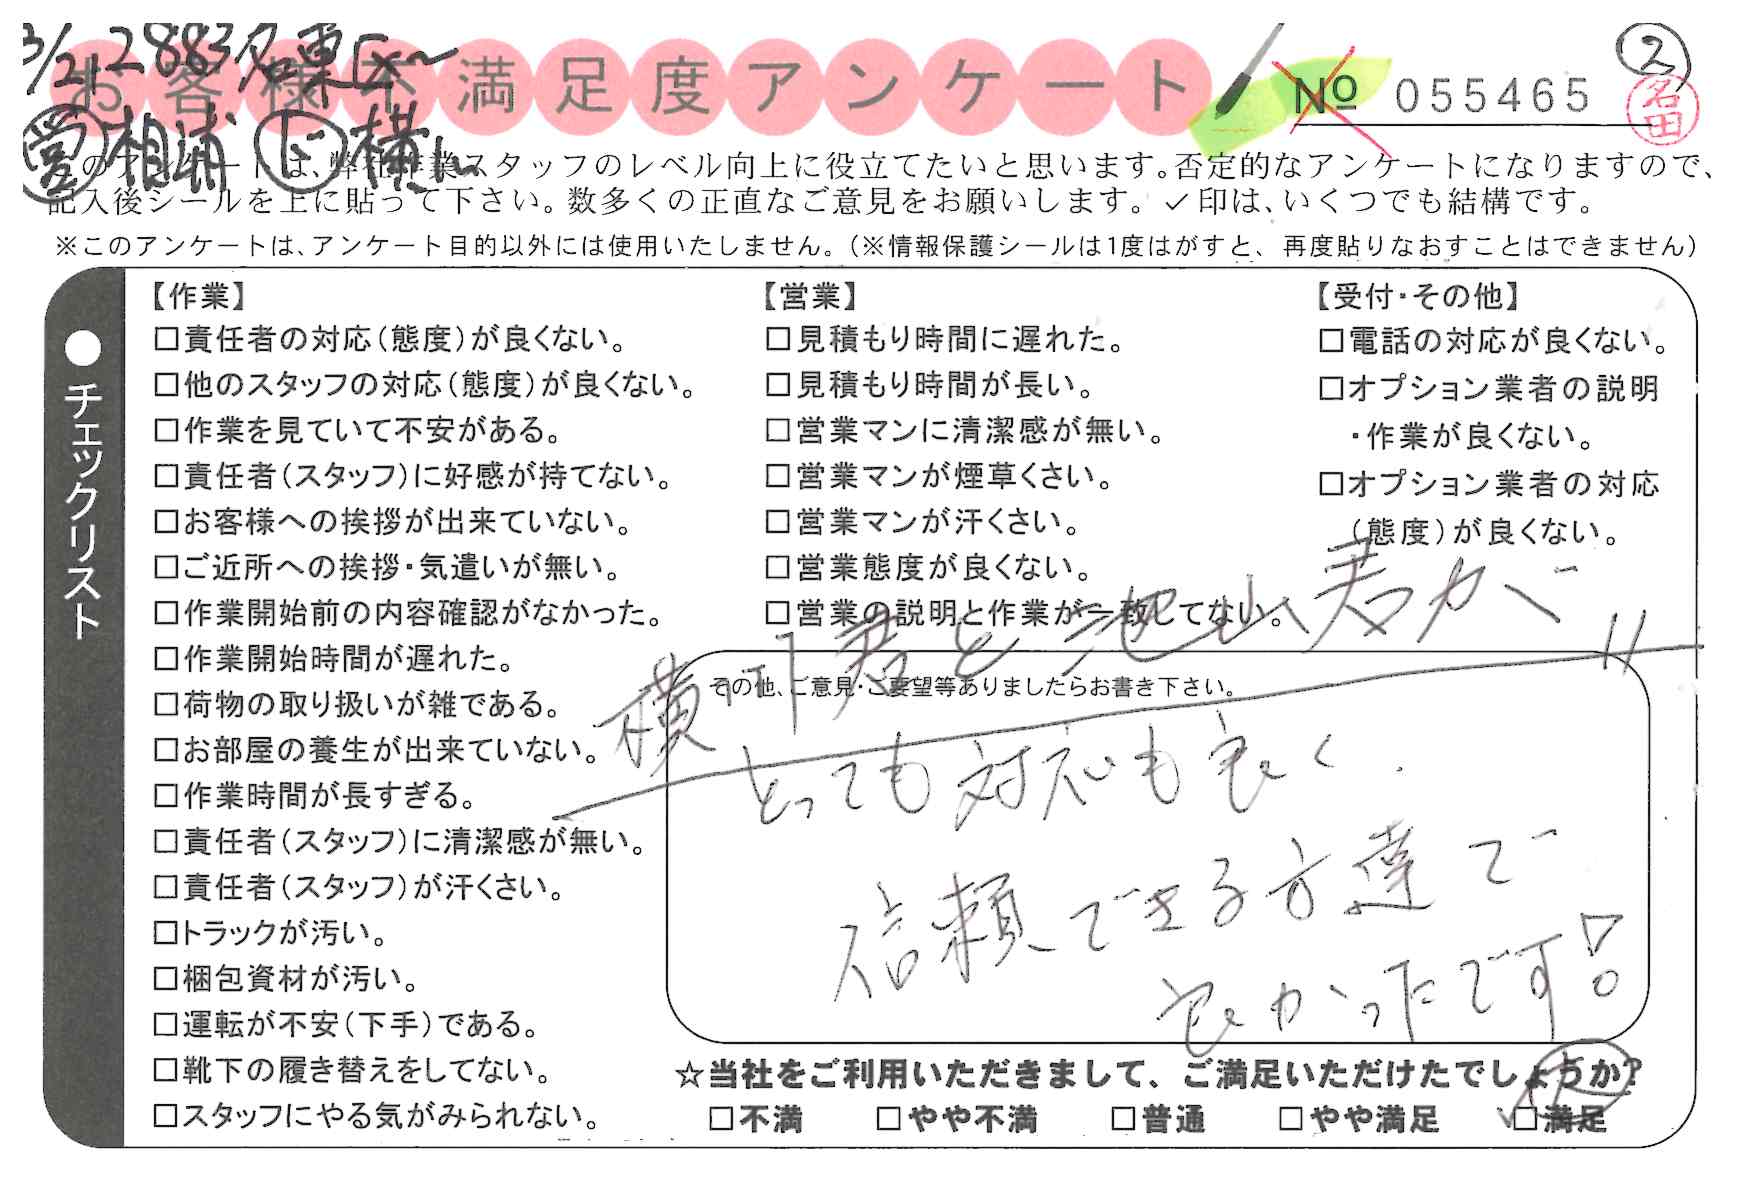 3/21 2883 名東Ex〜
お客様不満足度アンケート
№ 055465
②
名田
営 相浦 ド 横山
このアンケートは、弊社作業スタッフのレベル向上に役立てたいと思います。否定的なアンケートになりますので、
記入後シールを上に貼って下さい。数多くの正直なご意見をお願いします。✓印は、いくつでも結構です。
※このアンケートは、アンケート目的以外には使用いたしません。（※情報保護シールは1度はがすと、再度貼りなおすことはできません）
●チェックリスト
【作業】
□責任者の対応（態度）が良くない。
□他のスタッフの対応（態度）が良くない。
□作業を見ていて不安がある。
□責任者（スタッフ）に好感が持てない。
□お客様への挨拶が出来ていない。
□ご近所への挨拶・気遣いが無い。
□作業開始前の内容確認がなかった。
□作業開始時間が遅れた。
□荷物の取り扱いが雑である。
□お部屋の養生が出来ていない。
□作業時間が長すぎる。
□責任者（スタッフ）に清潔感が無い。
□責任者（スタッフ）が汗くさい。
□トラックが汚い。
□梱包資材が汚い。
□運転が不安（下手）である。
□靴下の履き替えをしてない。
□スタッフにやる気がみられない。
【営業】
□見積もり時間に遅れた。
□見積もり時間が長い。
□営業マンに清潔感が無い。
□営業マンが煙草くさい。
□営業マンが汗くさい。
□営業態度が良くない。
□営業の説明と作業が一致してない。
【受付・その他】
□電話の対応が良くない。
□オプション業者の説明
・作業が良くない。
□オプション業者の対応
（態度）が良くない。
その他、ご意見・ご要望等ありましたらお書き下さい。
横川君と池山君が
とっても対応も良く.
信頼できる方達で
良かったです!
☆当社をご利用いただきまして、ご満足いただけたでしょうか?
□不満 □やや不満 □普通 □やや満足 □満足